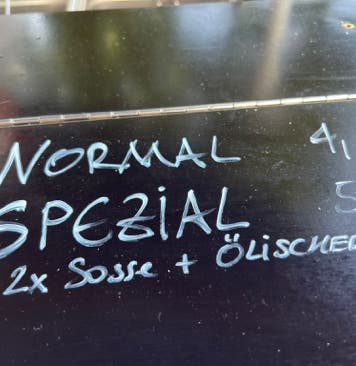 NORMAL 4,
SPEZiAL 5
2x Sosse + ÖLiSCHER